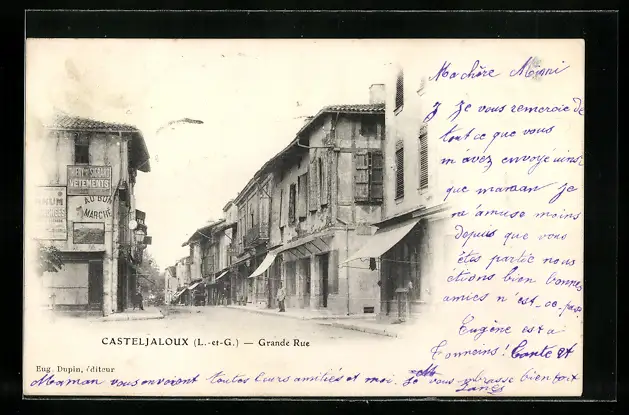 VÊTEMENTS
AU BON
MARCHÉ
Ma chère Minni
Je vous remercie de
tout ce que vous
m'avez envoyé ainsi
que maman je
m'amuse moins
depuis que vous
êtes partie nous
étions bien bonnes
amies n'est-ce-pas
Eugène est a
Tonneins! Tante et
Maman vous envoient toutes leurs amitiés et moi. Je vous embrasse bien fort
CASTELJALOUX (L.-et-G.) — Grande Rue
Eug. Dupin, éditeur